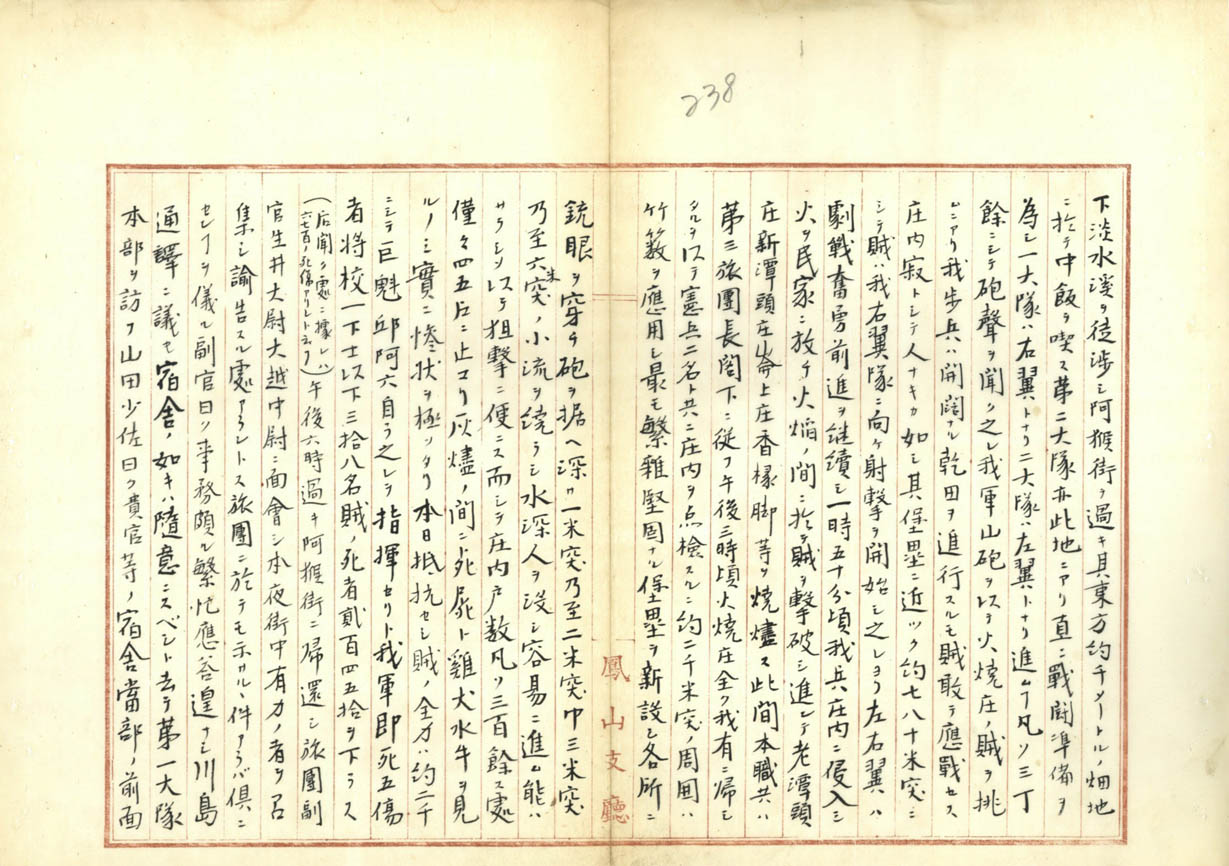 238
下淡水溪ヲ徒渉シ阿猴街ヲ過キ其東方約千メートルノ畑地
ニ於テ中飯ヲ喫ス第二大隊亦此地ニアリ直ニ戰鬪準備ヲ
為シ一大隊ハ右翼トナリ二大隊ハ左翼トナリ進ム凡ソ三丁
餘ニシテ砲聲ヲ聞ク之レ我軍山砲ヲ以テ火燒庄ノ賊ヲ挑
ムニアリ我歩兵ハ開闊ナル乾田ヲ進行スルモ賊敢テ應戰セス
庄内寂トシテ人ナキカ如シ其堡壘ニ近ツク約七八十米突ニ
シテ賊ハ我右翼隊ニ向ケ射撃ヲ開始シ之レヨリ左右翼ハ
劇戰奮勇前進ヲ继续シ一時五十分頃我兵庄内ニ侵入シ
火ヲ民家ニ放チ火焔ノ間ニ於テ賊ヲ撃破シ進ンテ老潭頭
庄新潭頭庄崙上庄香椽脚等ヲ燒燼ス此間本職共ハ
第三旅團長閣下ニ従フ午後三時頃火燒庄全ク我有ニ帰シ
タルヲ以テ憲兵二名ト共ニ庄内ヲ点檢スルニ約二千米突ノ周囲
竹籔ヲ應用シ最モ繁雜堅固ナル堡壘ヲ新設シ各所ニ
鳳山支廳
銃眼ヲ穿チ砲ヲ据ヘ深サ一米突乃至二米突巾三米突
乃至六米突ノ小流ヲ繞ラシ水深人ヲ没シ容易ニ進ム能ハ
サラシメ以テ狙撃ニ便ス而シテ庄内戸数凡ソ三百餘ス處
僅々四五戸ニ止マリ灰燼ノ間ニ死屍ト雞犬水牛ヲ見
ルノミ實ニ惨状ヲ極メタリ本日抵抗セシ賊ノ全力ハ約二千
ニシテ巨魁邱阿六自ラ之レヲ指揮セリト我軍即死五傷
者将校一下士以下三拾八名賊ノ死者貳百四五拾ヲ下ラス
(后聞ク處ニ據レハ六七百ノ死傷アリシト云フ)午後六時過キ阿猴街ニ帰還シ旅團副
官生井大尉大越中尉ニ面會シ本夜街中有力ノ者ヲ召
集シ諭告スル處アラントス旅團ニ於テモ示サルヽ件アラバ倶ニ
センヿヲ儀ル副官曰ク事務頗ル繁忙應答遑ナシ川島
通譯ニ議セ宿舎ノ如キハ隨意ニスベシト去テ第一大隊
本部ヲ訪フ山田少佐曰ク貴官等ノ宿舎當部ノ前面